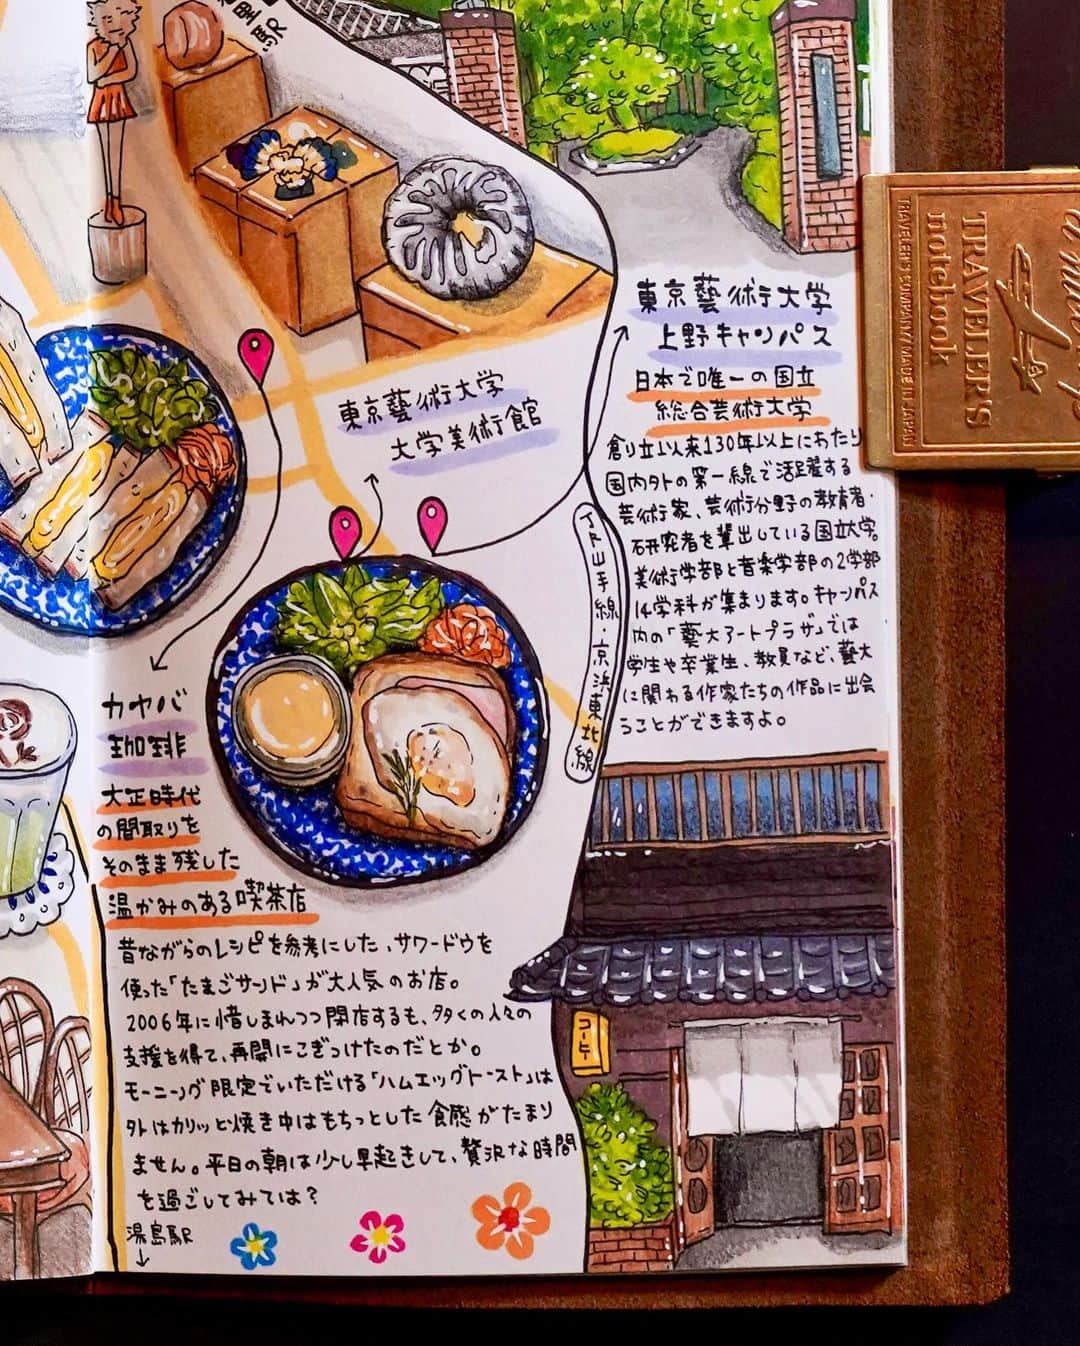 里駅
東京藝術大学
上野キャンパス
日本で唯一の国立
総合芸術大学
創立以来130年以上にわたり
国内外の第一線で活躍する
芸術家、芸術分野の教育者・
研究者を輩出している国立大学。
美術学部と音楽学部の2学部
14学科が集まります。キャンパス
内の「藝大アートプラザ」では
学生や卒業生、教員など、藝大
に関わる作家たちの作品に出会
うことができますよ。
東京藝術大学
大学美術館
JR山手線・京浜東北線
カヤバ
珈琲
大正時代
の間取りを
そのまま残した
温かみのある喫茶店
昔ながらのレシピを参考にした、サワードウを
使った「たまごサンド」が大人気のお店。
2006年に惜しまれつつ閉店するも、多くの人々の
支援を得て、再開にこぎつけたのだとか。
モーニング限定でいただける「ハムエッグトースト」は
外はカリッと焼き中はもちっとした食感がたまり
ません。平日の朝は少し早起きして、贅沢な時間
を過ごしてみては？
湯島駅
コーヒー
TRAVELER'S
notebook
TRAVELER'S COMPANY // MADE IN JAPAN